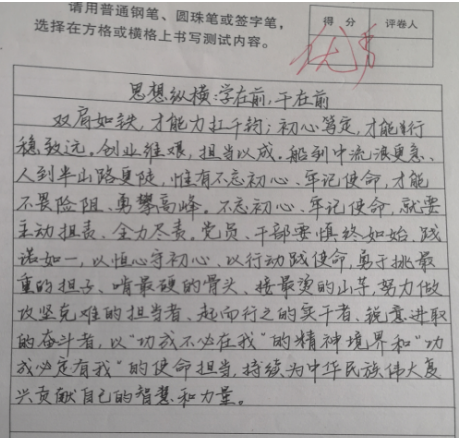 请用普通钢笔、圆珠笔或签字笔,
选择在方格或横格上书写测试内容。
得 分 评卷人
优秀
思想纵横:学在前,干在前
双肩如铁,才能力扛千钧;初心笃定,才能行
稳致远。创业维艰,担当以成。船到中流浪更急、
人到半山路更陡,惟有不忘初心、牢记使命,才能
不畏险阻、勇攀高峰。不忘初心、牢记使命,就要
主动担责、全力尽责。党员、干部要慎终如始、践
诺如一,以恒心守初心、以行动践使命,勇于挑最
重的担子、啃最硬的骨头、接最烫的山芋,努力做
攻坚克难的担当者、起而行之的实干者、锐意进取
的奋斗者,以“功成不必在我”的精神境界和“功
成必定有我”的使命担当,持续为中华民族伟大复
兴贡献自己的智慧和力量。